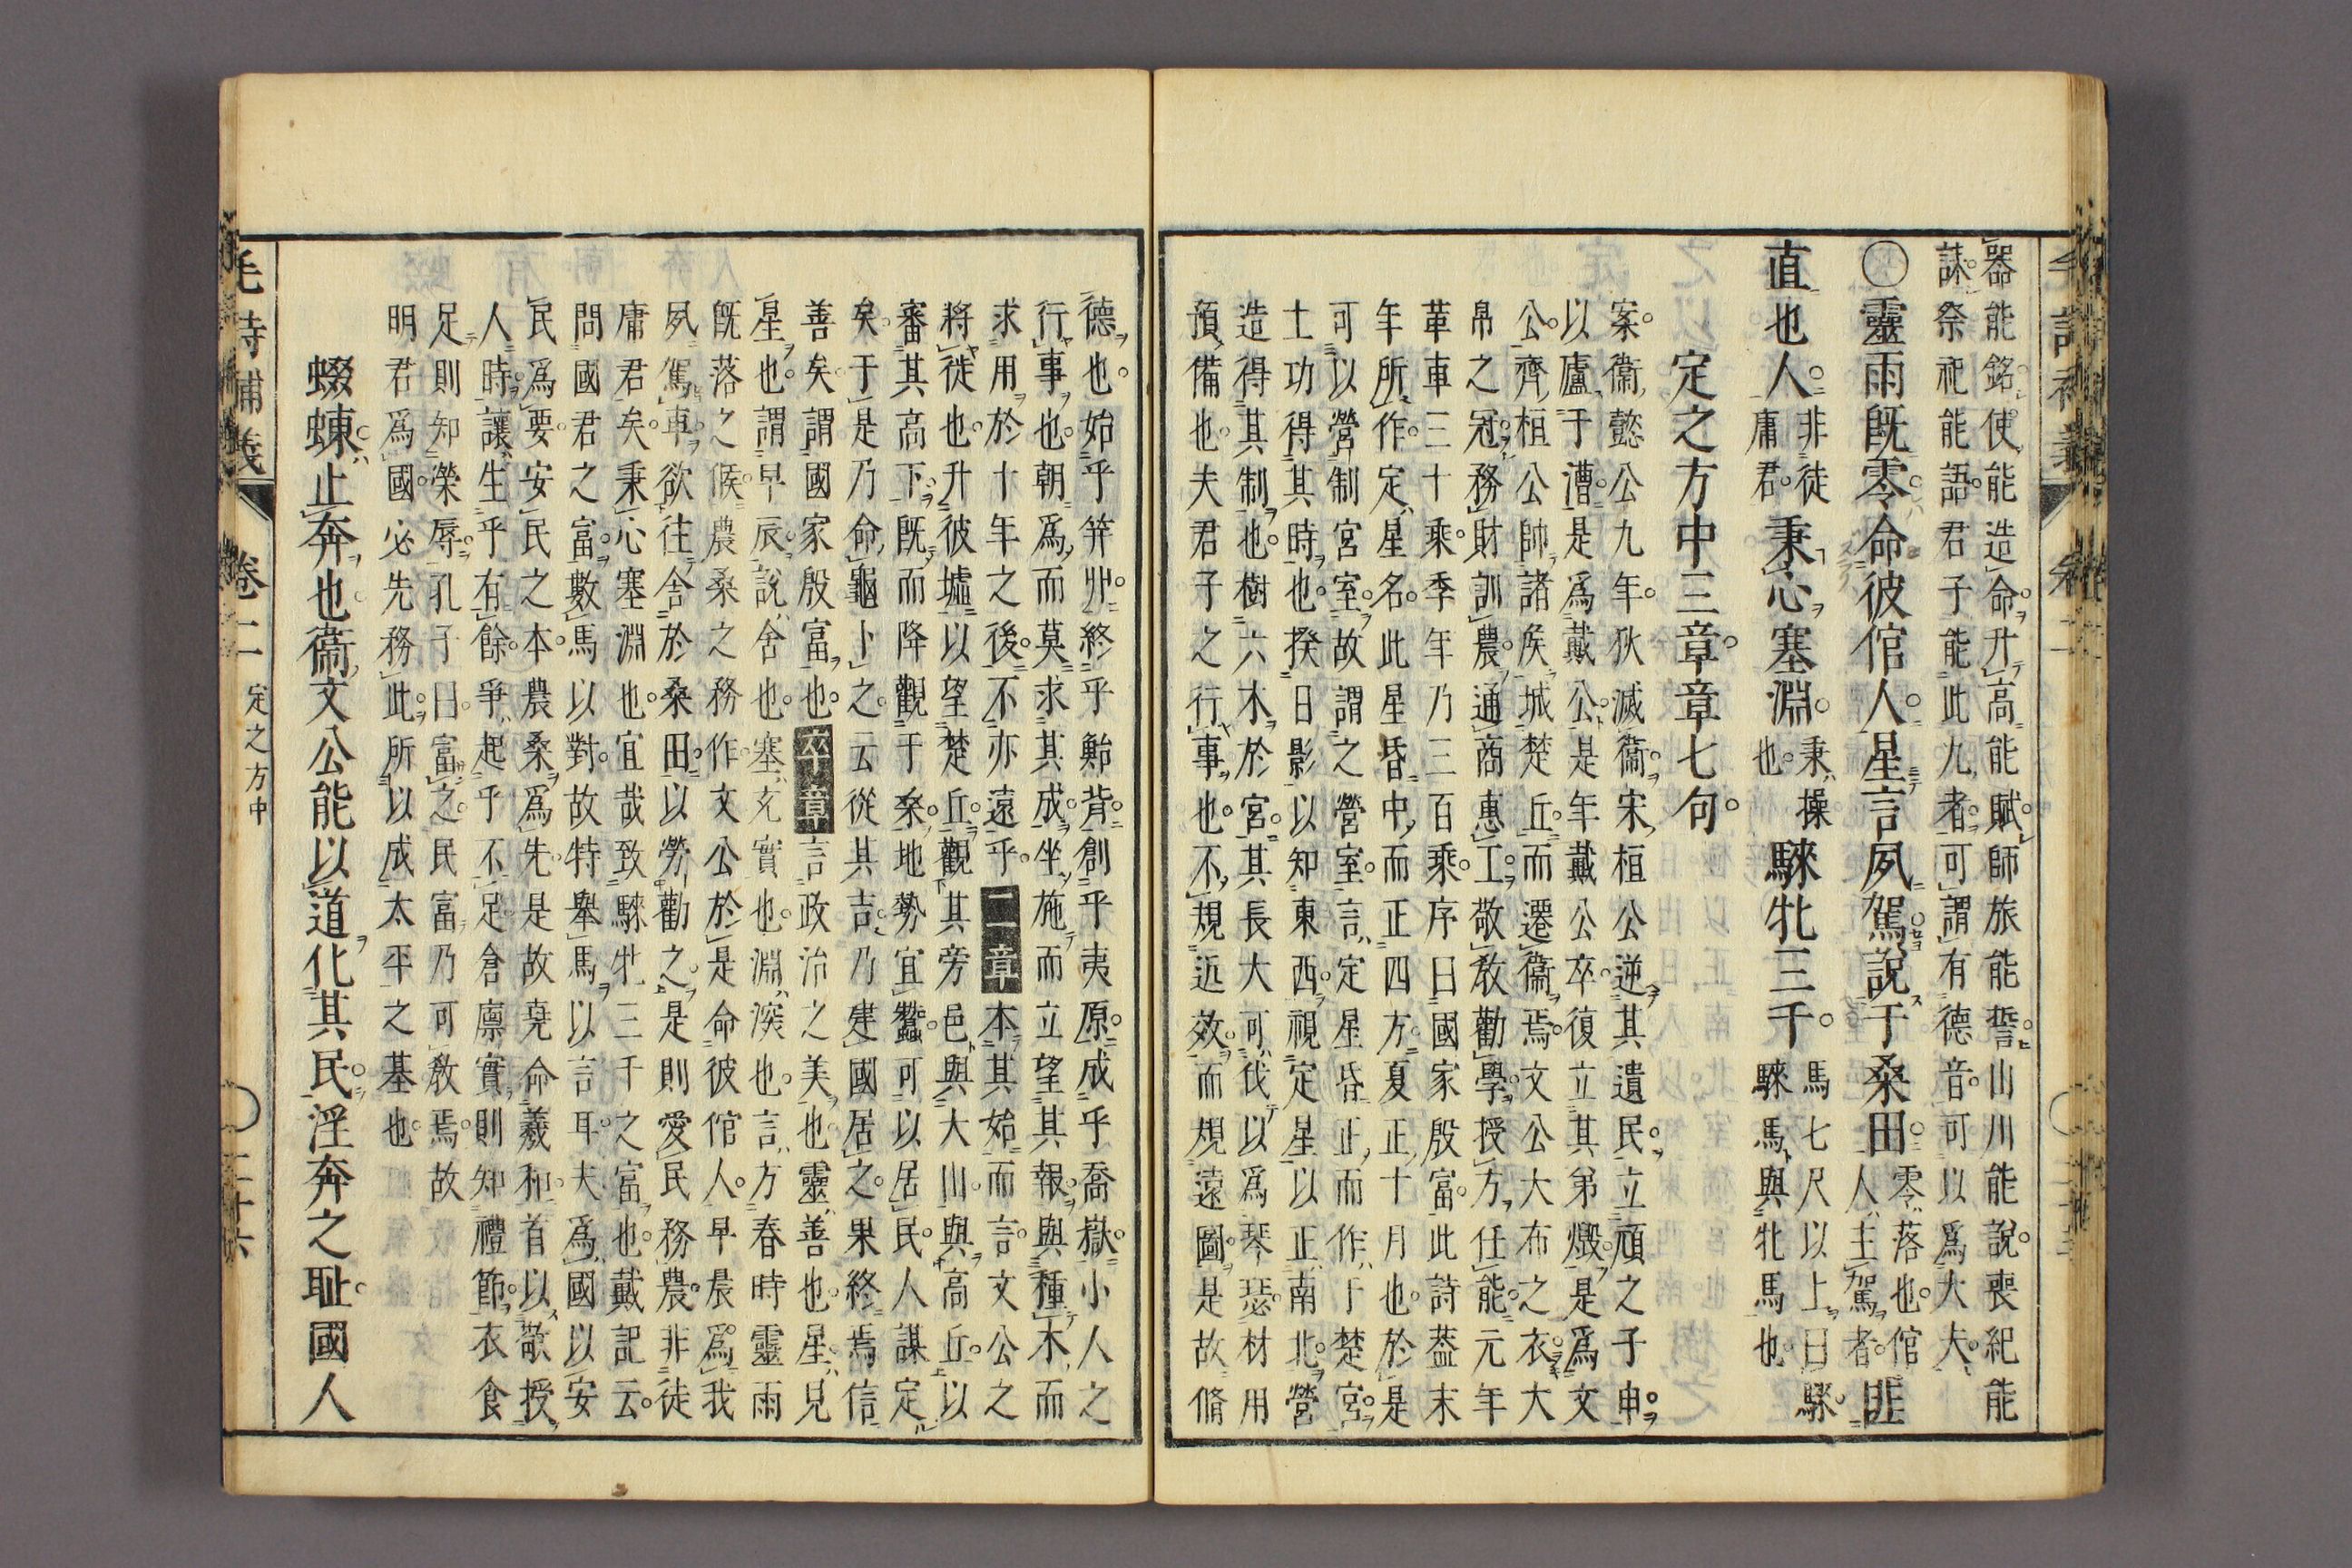 器能銘使能造命升高能賦師旅能誓山川能說喪紀能
誄祭祀能語君子能此九者可謂有德音可以爲大夫
○靈雨既零命彼倌人星言夙駕說于桑田零落也倌人主駕者匪
直也人非徒庸君秉心塞淵秉操也騋牝三千馬七尺以上曰騋騋馬與牝馬也
定之方中三章章七句
案衞懿公九年狄滅衞宋桓公逆其遺民立頑之子申
以廬于漕是爲戴公是年戴公卒復立其弟燬是爲文
公齊桓公帥諸侯城楚丘而遷衞焉文公大布之衣大
帛之冠務財訓農通商惠工敬敎勸學授方任能元年
革車三十乘季年乃三百乘序曰國家殷富此詩蓋末
年所作定星名此星昏中而正四方夏正十月也於是
可以營制宮室故謂之營室言定星昏正而作于楚宮
土功得其時也揆日影以知東西視定星以正南北營
造得其制也樹六木於宮其長大可伐以爲琴瑟材用
預備也夫君子之行事也不規近效而規遠圖是故脩
德也始乎笄丱終乎鮐背創乎夷原成乎喬嶽小人之
行事也朝爲而莫求其成坐施而立望其報與種木而
求用於十年之後不亦遠乎二章本其始而言文公之
將徙也升彼墟以望楚丘觀其旁邑與大山與高丘以
審其高下既而降觀于桑地勢宜蠶可以居民人謀定
矣于是乃命龜卜之云從其吉乃建國居之果終焉信
善矣謂國家殷富也卒章言政治之美也靈善也星見
星也謂早辰說舍也塞充實也淵深也言方春時靈雨
既落之候農桑之務作文公於是命彼倌人早晨爲我
夙駕車欲往舍於桑田以勞勸之是則愛民務農非徒
庸君矣秉心塞淵也宜哉致騋牝三千之富也戴記云
問國君之富數馬以對故特舉馬以言耳夫爲國以安
民爲要安民之本農桑爲先是故堯命羲和首以敬授
人時讓生乎有餘爭起乎不足倉廩實則知禮節衣食
足則知榮辱孔子曰富之民富乃可敎焉故
明君爲國必先務此所以成太平之基也
蝃蝀止奔也衞文公能以道化其民淫奔之恥國人
毛詩補義 卷二 定之方中 二十六